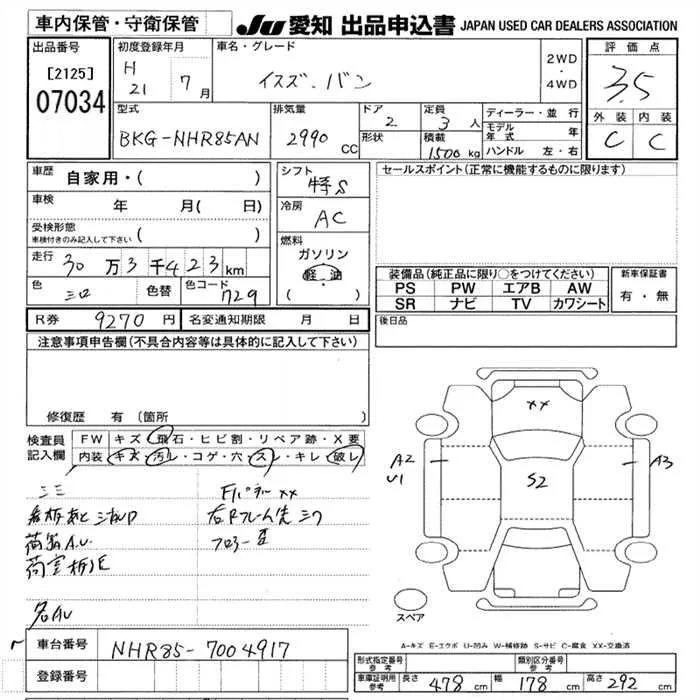 車内保管・守衛保管
JU 愛知 出品申込書 JAPAN USED CAR DEALERS ASSOCIATION
出品番号
[2125]
07034
初度登録年月
H
21 7月
車名・グレード
イスズ・バン
2WD
・
4WD
評価点
3.5
外装 内装
C C
型式
BKG-NHR85AN
排気量
2990 CC
ドア
2
形状
定員
3人
積載
1500kg
ディーラー・並行
モデル年式 年
ハンドル 左・右
車歴
自家用・( )
車検
年 月( 日)
受検形態
車検付きのみ記入して下さい ( )
走行
30万3千423km
色
シロ
色替
色コード
729
シフト
冷房
AC
燃料
ガソリン
軽油
( )
セールスポイント(正常に機能するものに限ります)
装備品(純正品に限り○をつけてください)
PS PW エアB AW
SR ナビ TV カワシート
新車保証書
有・無
後日品
R券 9270円
名変通知期限 月 日
注意事項申告欄(不具合内容等は具体的に記入して下さい)
修復歴 有 (箇所 )
検査員
記入欄
FW キズ・飛石・ヒビ割・リペア跡・X要
内装 キズ・汚レ・コゲ・穴・スレ・キレ・破レ
荷箱A.U.
××
A2
U1
S2
A3
スペア
A-キズ E-エクボ U-凹み W-補修跡 S-サビ C-腐食 XX-交換済
車台番号
NHR85-7004917
登録番号
形式指定番号
参考
類別区分番号
参考
車庫証明用
参考
長さ 478cm
幅 178cm
高さ 292cm